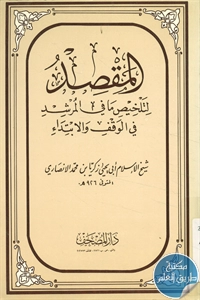 المقصد
لتلخيص ما في المرشد
في الوقف والابتداء
شيخ الإسلام أبي يحيى زكريا بن محمد الأنصاري
المتوفى ٩٢٦ هـ
دار المصحف
مكتبة
طريق العلم